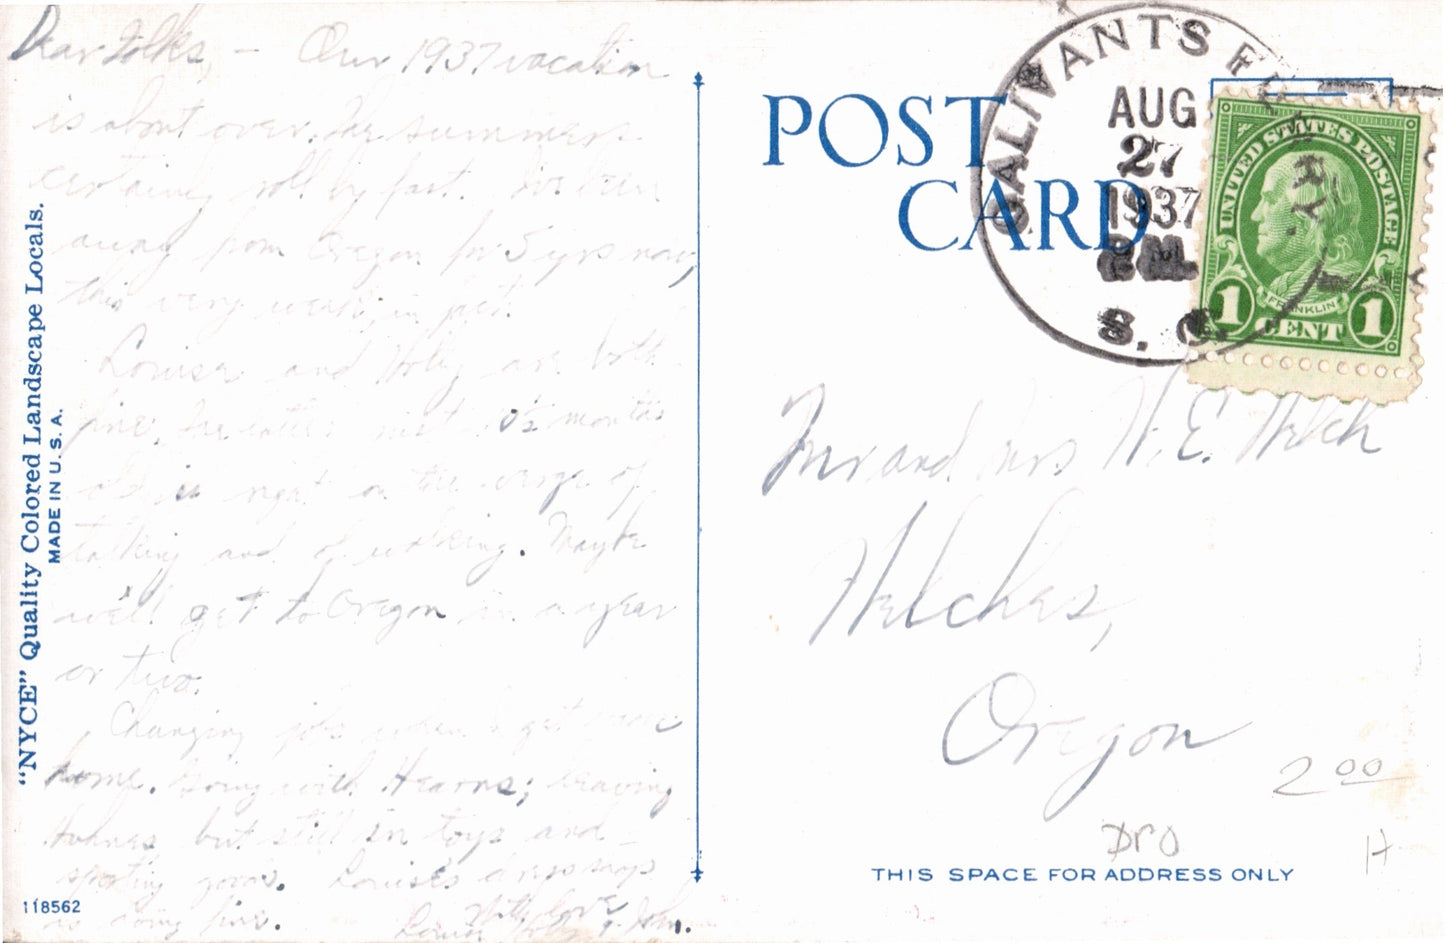 Dear Folks, - Our 1937 vacation
is about over. The summers
certainly roll by fast. We've been
away from Oregon for 5 yrs now,
this very week, in fact.
Louise and Holly are both
fine. The latter not 10½ months
old is right on the verge of
talking and of walking. Maybe
we'll get to Oregon in a year
or two.
Changing jobs when I get
home. Going with Hearns; leaving
but still in toys and
sporting goods. Louise's dress shop
is doing fine.
With love
Louise Holly & John.
"NYCE" Quality Colored Landscape Locals.
MADE IN U.S.A.
118562
POST
CARD
GALIVANTS FERRY.
AUG
27
1937
P.M.
S. C.
UNITED STATES POSTAGE
FRANKLIN
1 CENT 1
Mr and Mrs H. E. Welch
Welches,
Oregon
2 00
DPO
H
THIS SPACE FOR ADDRESS ONLY